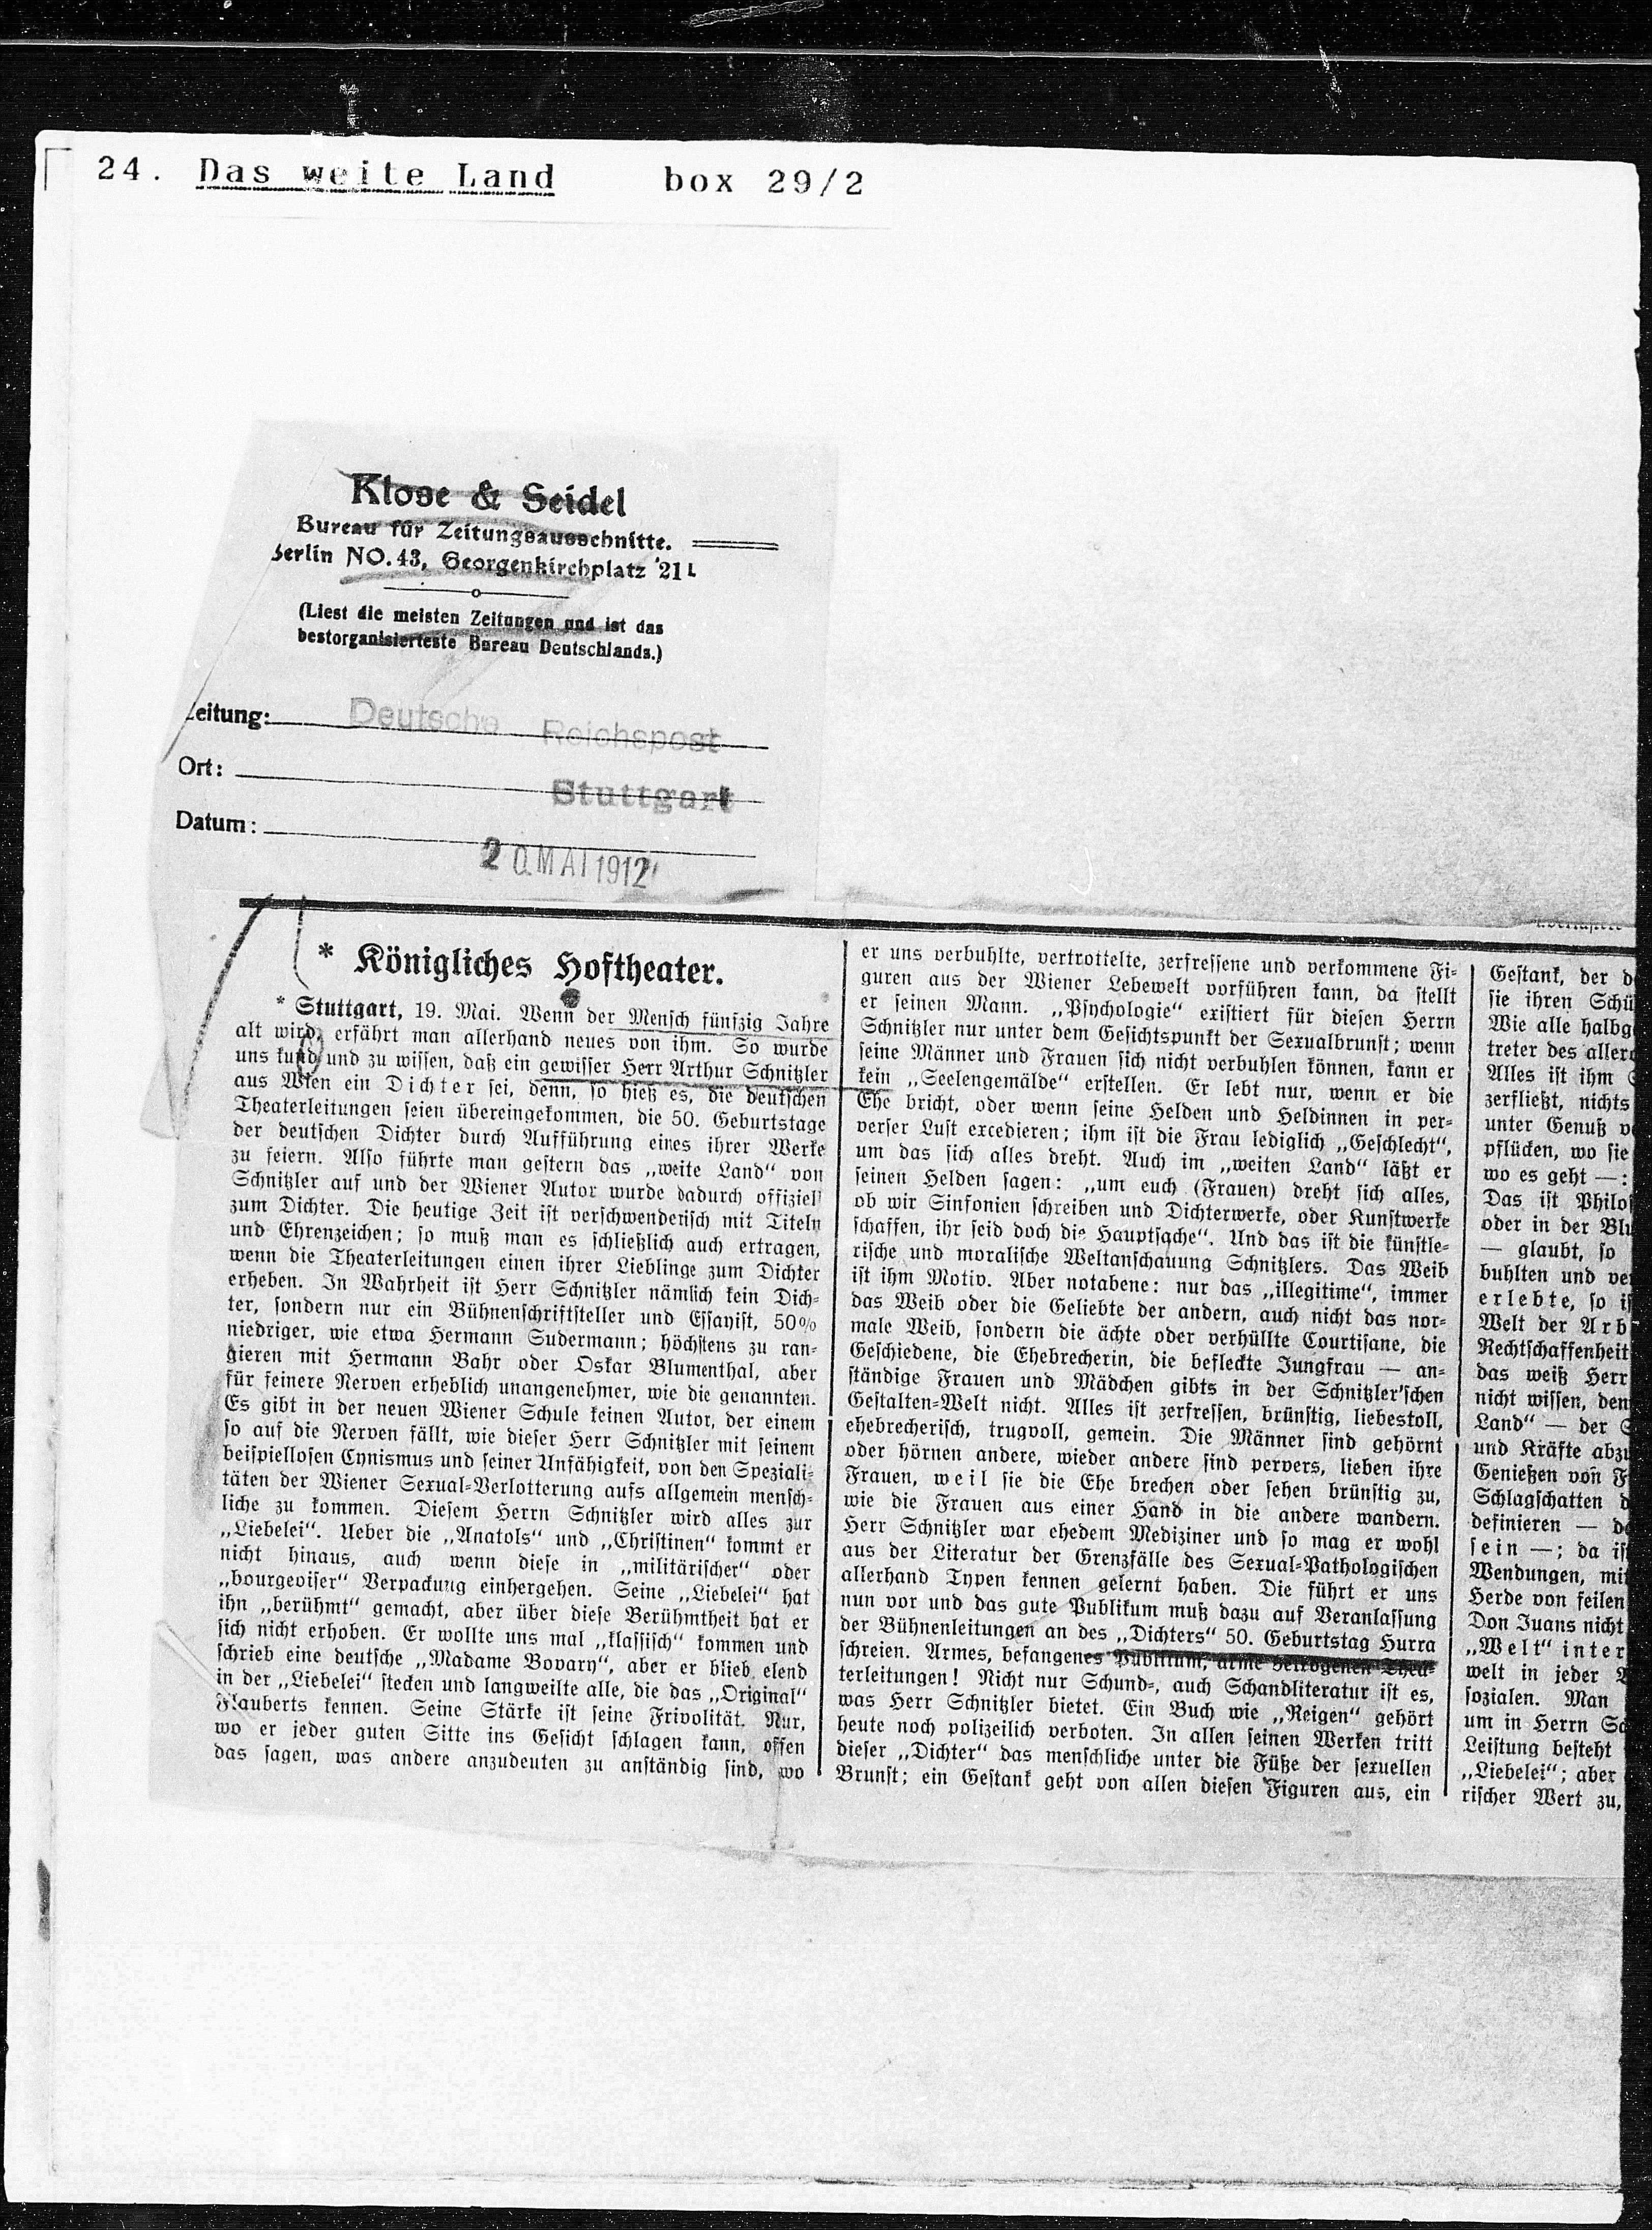 24. Das weite Land box 29/2
Klose & Seidel
Bureau für Zeitungsausschnitte.
Berlin NO. 43, Georgenkirchplatz 21 I.
(Liest die meisten Zeitungen und ist das
bestorganisierteste Bureau Deutschlands.)
Zeitung: Deutsche Reichspost
Ort: Stuttgart
Datum: 20. MAI 1912
* Königliches Hoftheater.
* Stuttgart, 19. Mai. Wenn der Mensch fünfzig Jahre
alt wird, erfährt man allerhand neues von ihm. So wurde
uns kund und zu wissen, daß ein gewisser Herr Arthur Schnitzler
aus Wien ein Dichter sei, denn, so hieß es, die deutschen
Theaterleitungen seien übereingekommen, die 50. Geburtstage
der deutschen Dichter durch Aufführung eines ihrer Werke
zu feiern. Also führte man gestern das „weite Land“ von
Schnitzler auf und der Wiener Autor wurde dadurch offiziell
zum Dichter. Die heutige Zeit ist verschwenderisch mit Titeln
und Ehrenzeichen; so muß man es schließlich auch ertragen,
wenn die Theaterleitungen einen ihrer Lieblinge zum Dichter
erheben. In Wahrheit ist Herr Schnitzler nämlich kein Dich-
ter, sondern nur ein Bühnenschriftsteller und Essayist, 50%
niedriger, wie etwa Hermann Sudermann; höchstens zu ran-
gieren mit Hermann Bahr oder Oskar Blumenthal, aber
für feinere Nerven erheblich unangenehmer, wie die genannten.
Es gibt in der neuen Wiener Schule keinen Autor, der einem
so auf die Nerven fällt, wie dieser Herr Schnitzler mit seinem
beispiellosen Cynismus und seiner Unfähigkeit, von den Speziali-
täten der Wiener Sexual-Verlotterung aufs allgemein mensch-
liche zu kommen. Diesem Herrn Schnitzler wird alles zur
„Liebelei“. Ueber die „Anatols“ und „Christinen“ kommt er
nicht hinaus, auch wenn diese in „militärischer“ oder
„bourgeoiser“ Verpackung einhergehen. Seine „Liebelei“ hat
ihn „berühmt“ gemacht, aber über diese Berühmtheit hat er
sich nicht erhoben. Er wollte uns mal „klassisch“ kommen und
schrieb eine deutsche „Madame Bovary“, aber er blieb elend
in der „Liebelei“ stecken und langweilte alle, die das „Original“
Flauberts kennen. Seine Stärke ist seine Frivolität. Nur,
wo er jeder guten Sitte ins Gesicht schlagen kann, offen
das sagen, was andere anzudeuten zu anständig sind, wo
er uns verbuhlte, vertrottelte, zerfressene und verkommene Fi-
guren aus der Wiener Lebewelt vorführen kann, da stellt
er seinen Mann. „Psychologie“ existiert für diesen Herrn
Schnitzler nur unter dem Gesichtspunkt der Sexualbrunst; wenn
seine Männer und Frauen sich nicht verbuhlen können, kann er
kein „Seelengemälde“ erstellen. Er lebt nur, wenn er die
Ehe bricht, oder wenn seine Helden und Heldinnen in per-
verser Lust excedieren; ihm ist die Frau lediglich „Geschlecht“,
um das sich alles dreht. Auch im „weiten Land“ läßt er
seinen Helden sagen: „um euch (Frauen) dreht sich alles,
ob wir Sinfonien schreiben und Dichterwerke, oder Kunstwerke
schaffen, ihr seid doch die Hauptsache“. Und das ist die künstle-
rische und moralische Weltanschauung Schnitzlers. Das Weib
ist ihm Motiv. Aber notabene: nur das „illegitime“, immer
das Weib oder die Geliebte der andern, auch nicht das nor-
male Weib, sondern die ächte oder verhüllte Courtisane, die
Geschiedene, die Ehebrecherin, die befleckte Jungfrau — an-
ständige Frauen und Mädchen gibts in der Schnitzler'schen
Gestalten-Welt nicht. Alles ist zerfressen, brünstig, liebestoll,
ehebrecherisch, trugvoll, gemein. Die Männer sind gehörnt
oder hörnen andere, wieder andere sind pervers, lieben ihre
Frauen, weil sie die Ehe brechen oder sehen brünstig zu,
wie die Frauen aus einer Hand in die andere wandern.
Herr Schnitzler war ehedem Mediziner und so mag er wohl
aus der Literatur der Grenzfälle des Sexual-Pathologischen
allerhand Typen kennen gelernt haben. Die führt er uns
nun vor und das gute Publikum muß dazu auf Veranlassung
der Bühnenleitungen an des „Dichters“ 50. Geburtstag Hurra
schreien. Armes, befangenes Publikum, arme betrogenen Thea-
terleitungen! Nicht nur Schund-, auch Schandliteratur ist es,
was Herr Schnitzler bietet. Ein Buch wie „Reigen“ gehört
heute noch polizeilich verboten. In allen seinen Werken tritt
dieser „Dichter“ das menschliche unter die Füße der sexuellen
Brunst; ein Gestank geht von allen diesen Figuren aus, ein
Gestank, der
sie ihren
Wie alle
treter des
Alles ist ihm
zerfließt, nichts
unter Genuß
pflücken, wo sie
wo es geht —:
Das ist
oder in der
— glaubt, so
buhlten und
erlebte, so
Welt der
Rechtschaffenheit
das weiß Herr
nicht wissen,
Land“ — der
und Kräfte
Genießen von
Schlagschatten
definieren —
sein —; da
Wendungen,
Herde von feilen
Don Juans nicht
„Welt“
welt in jeder
sozialen. Man
um in Herrn
Leistung besteht
„Liebelei“; aber
rischer Wert zu,